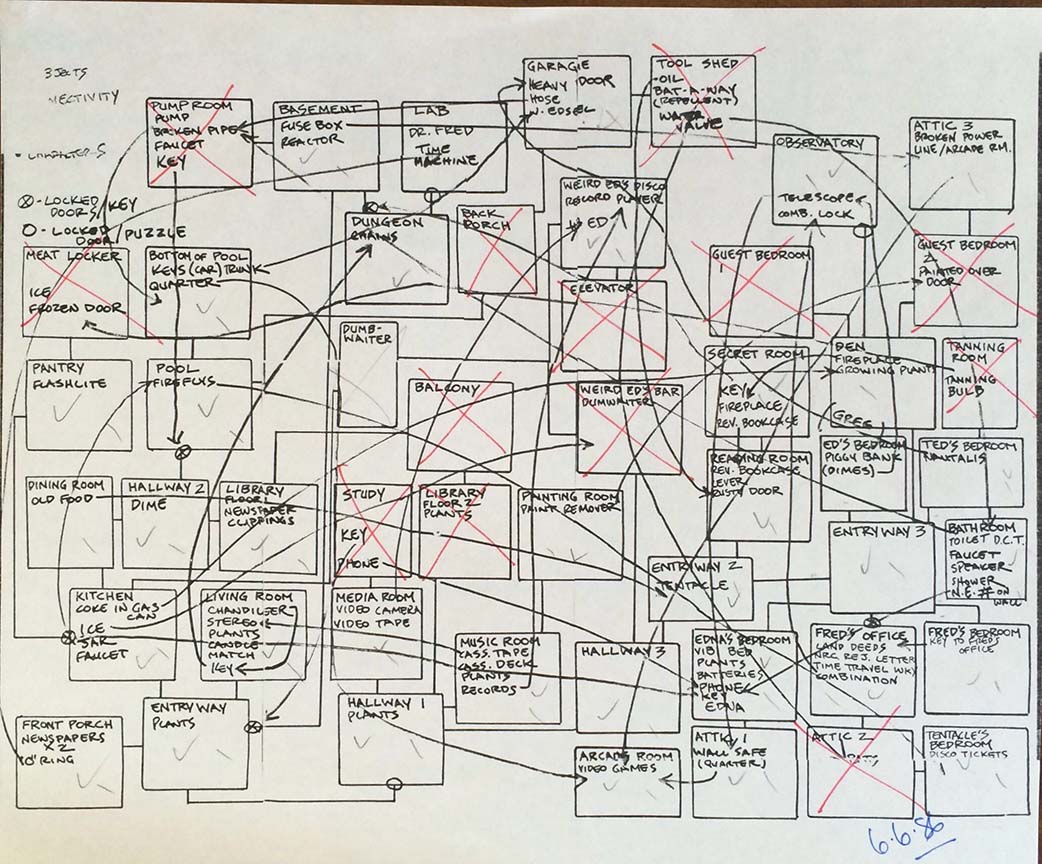 GARAGE
HEAVY DOOR
HOSE
W. EDSEL
TOOL SHED
-OIL
BAT-A-WAY
(REPELLENT)
WATER
VALVE
PUMP ROOM
PUMP
BROKEN PIPE
FAUCET
KEY
BASEMENT
FUSE BOX
REACTOR
LAB
DR. FRED
TIME
MACHINE
OBSERVATORY
TELESCOPE
COMB. LOCK
ATTIC 3
BROKEN POWER
LINE/ARCADE RM.
⊗-LOCKED
DOORS/KEY
O-LOCKED
DOOR/PUZZLE
DUNGEON
CHAINS
BACK
PORCH
WEIRD ED'S DISCO
RECORD PLAYER
W ED
MEAT LOCKER
ICE
FROZEN DOOR
BOTTOM OF POOL
KEYS (CAR) TRUNK
QUARTER
ELEVATOR
GUEST BEDROOM
1
GUEST BEDROOM
2
PAINTED OVER
DOOR
PANTRY
FLASHLITE
POOL
DUMB-
WAITER
BALCONY
WEIRD ED'S BAR
DUMWAITER
SECRET ROOM
KEY
FIREPLACE
REV. BOOKCASE
DEN
FIREPLACE
GROWING PLANTS
TANNING
ROOM
TANNING
BULB
READING ROOM
REV. BOOKCASE
LEVER
RUSTY DOOR
ED'S BEDROOM
PIGGY BANK
(DIMES)
TED'S BEDROOM
NAUTALIS
DINING ROOM
OLD FOOD
HALLWAY 2
DIME
LIBRARY
FLOOR 1
NEWSPAPER
CLIPPINGS
STUDY
KEY
PHONE
LIBRARY
FLOOR 2
PLANTS
PAINTING ROOM
PAINT REMOVER
ENTRYWAY 2
TENTACLE
ENTRYWAY 3
BATHROOM
TOILET D.C.T.
FAUCET
SPEAKER
SHOWER
N.E. # ON
WALL
KITCHEN
COKE IN GAS
CAN
ICE
JAR
FAUCET
LIVING ROOM
CHANDILIER
STEREO
PLANTS
CANDLE
MATCH
KEY
MEDIA ROOM
VIDEO CAMERA
VIDEO TAPE
MUSIC ROOM
CASS. TAPE
CASS. DECK
PLANTS
RECORDS
HALLWAY 3
EDNA'S BEDROOM
VIB BED
PLANTS
BATTERIES
PHONE
KEY
EDNA
FRED'S OFFICE
LAND DEEDS
NRC REJ. LETTER
TIME TRAVEL WK/
COMBINATION
FRED'S BEDROOM
KEY TO FRED'S
OFFICE
FRONT PORCH
NEWSPAPERS
X2
"O" RING
ENTRYWAY
PLANTS
HALLWAY 1
PLANTS
ARCADE ROOM
VIDEO GAMES
ATTIC 1
WALL SAFE
(QUARTER)
ATTIC 2
TENTACLE'S
BEDROOM
DISCO TICKETS
6.6.86